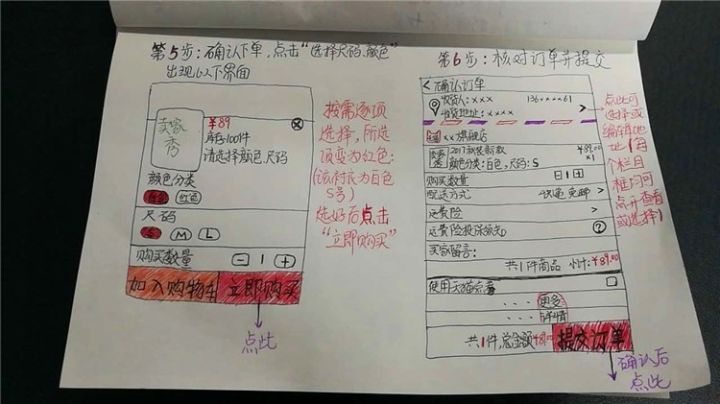 第5步:确认下单,点击“选择尺码.颜色”
出现以下界面
卖家
秀
¥89
库存100件
请选择颜色.尺码
颜色分类
白色 红色
尺码
S M L
购买数量 - 1 +
加入购物车 立即购买
点此
按需逐项
选择,所选
项变为红色:
(该衬衣为白色
S号)
选好后点击
“立即购买”
第6步:核对订单并提交
<确认订单
收货人:xxx 136xxxx61
收货地址:xxx >
xx旗舰店
2017新装新款 ¥89.00
颜色分类:白色,尺码:S x1
购买数量
配送方式 快递 免邮 >
运费险 >
?
买家留言:
共1件商品 小计:¥89.00
使用天猫
...更多
...详情
共1件,总金额¥89.00 提交订单
确认后
点此
点此可
选择或
编辑地
址(每
个栏目
框均可
点开查看
或选择)